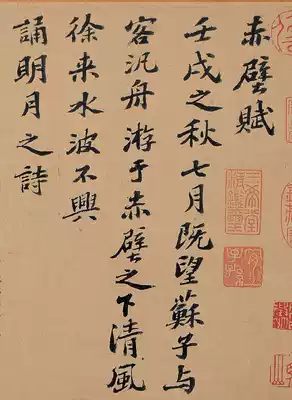 赤壁賦
壬戌之秋七月既望蘇子与
客泛舟游于赤壁之下清風
徐来水波不興
誦明月之詩